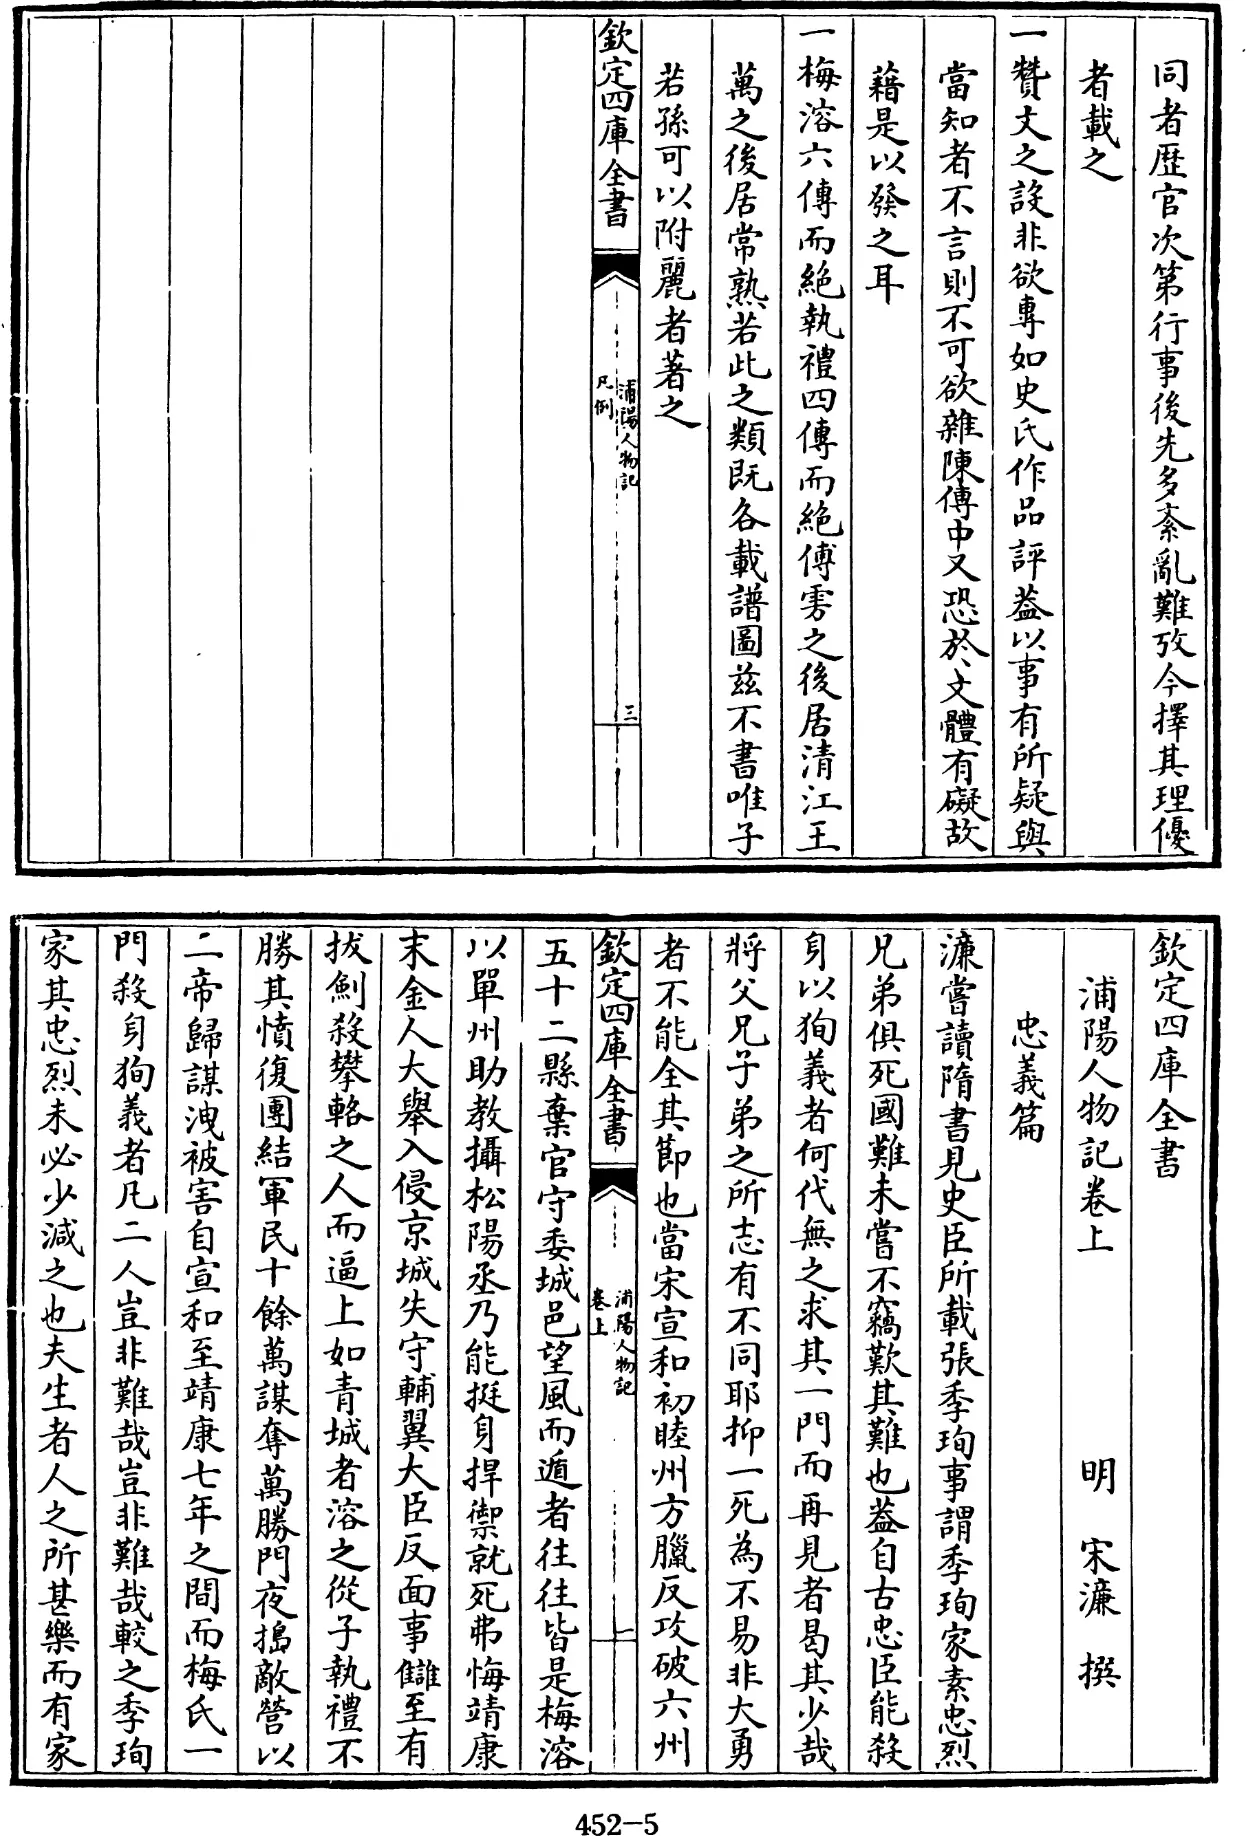 同者歴官次第行事後先多紊亂難攷今擇其理優
者載之
一贊文之設非欲專如史氏作品評葢以事有所疑與
當知者不言則不可欲雜陳傳中又恐於文體有礙故
藉是以發之耳
一梅溶六傳而絶執禮四傳而絶傅雱之後居清江王
萬之後居常熟若此之類既各載譜圖兹不書唯子
若孫可以附麗者著之
欽定四庫全書
浦陽人物記
凡例
三
欽定四庫全書
浦陽人物記卷上
明 宋濂 撰
忠義篇
濂嘗讀隋書見史臣所載張季珣事謂季珣家素忠烈
兄弟俱死國難未嘗不竊歎其難也葢自古忠臣能殺
身以狥義者何代無之求其一門而再見者曷其少哉
將父兄子弟之所志有不同耶抑一死為不易非大勇
者不能全其節也當宋宣和初睦州方臘反攻破六州
欽定四庫全書
浦陽人物記
卷上
一
五十二縣棄官守委城邑望風而遁者往往皆是梅溶
以單州助教攝松陽丞乃能挺身捍禦就死弗悔靖康
末金人大舉入侵京城失守輔翼大臣反面事讎至有
拔劍殺攀輅之人而逼上如青城者溶之從子執禮不
勝其憤復團結軍民十餘萬謀奪萬勝門夜搗敵營以
二帝歸謀洩被害自宣和至靖康七年之間而梅氏一
門殺身狥義者凡二人豈非難哉豈非難哉較之季珣
家其忠烈未必少減之也夫生者人之所甚樂而有家
452-5